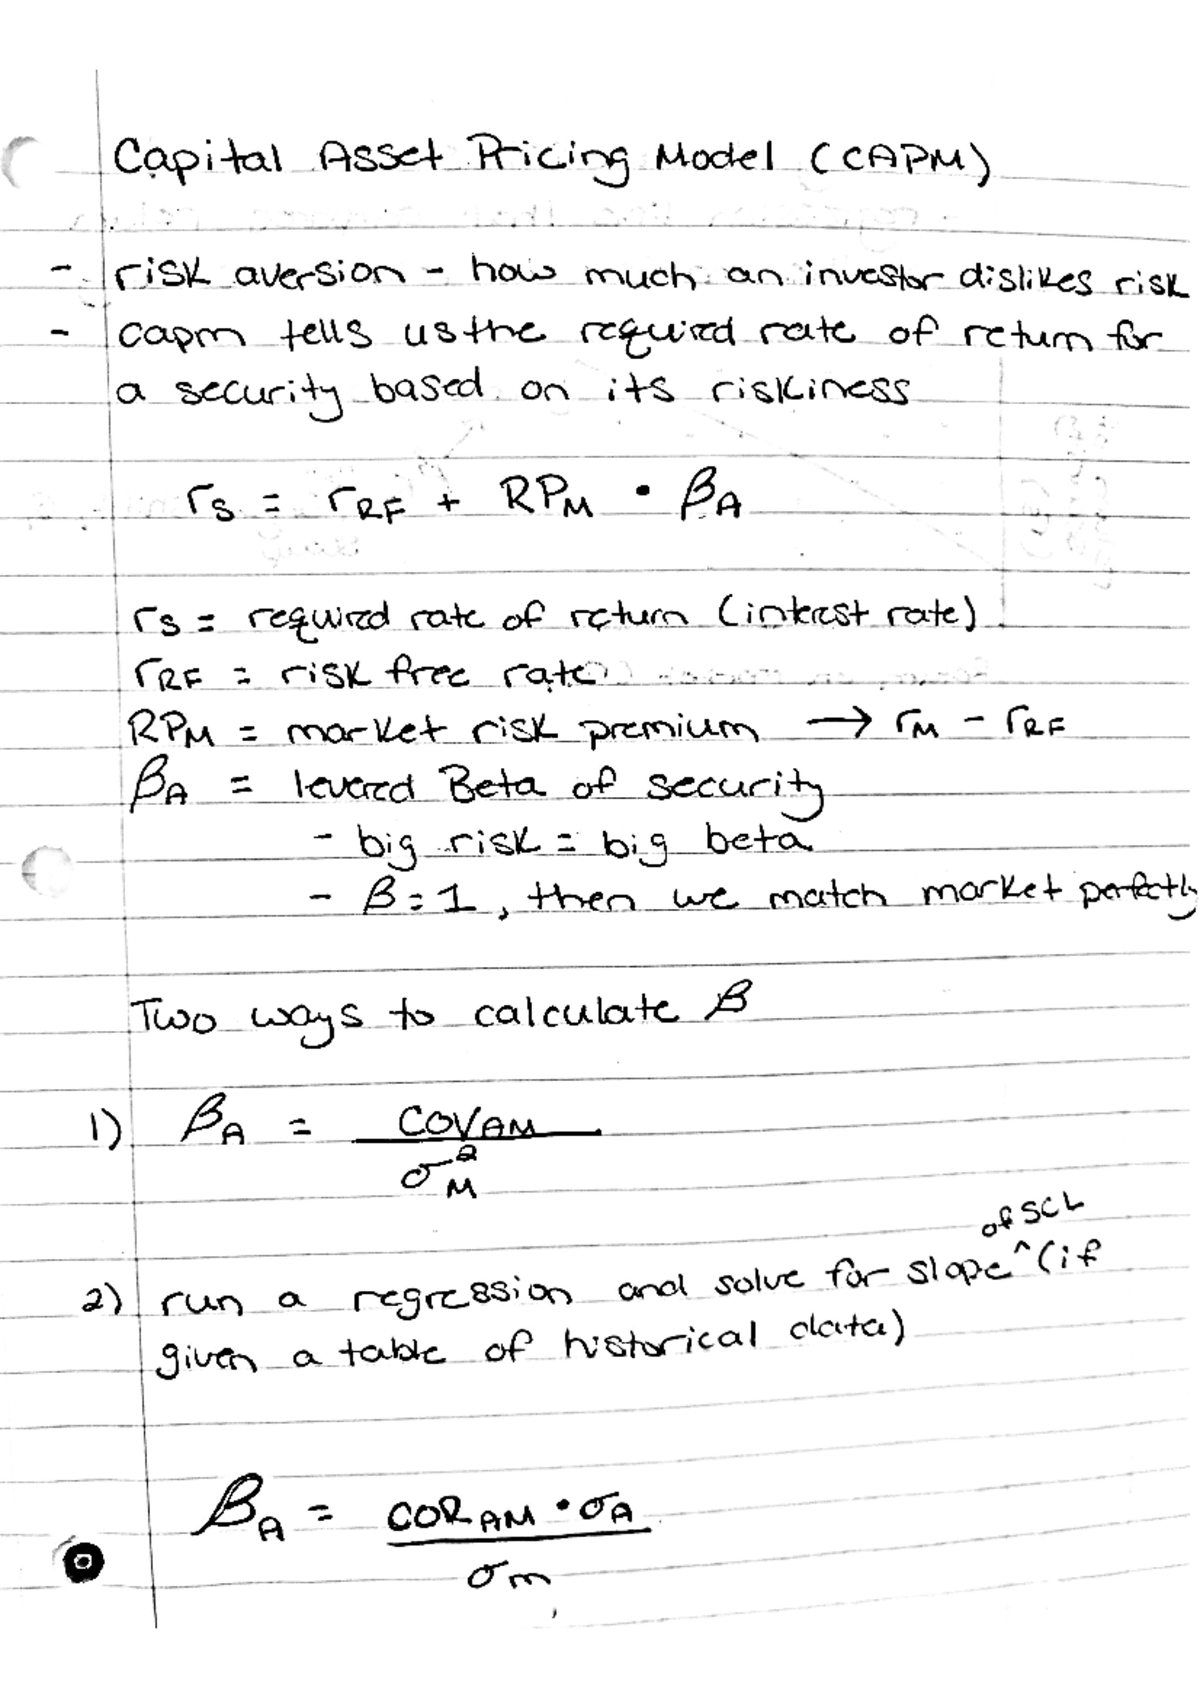 Capital Asset Pricing Model (CAPM)
- risk aversion - how much an investor dislikes risk
- capm tells us the required rate of return for
a security based on its riskiness
rS = rRF + RPM • βA
rS = required rate of return (interest rate)
rRF = risk free rate
RPM = market risk premium → rM - rRF
βA = levered Beta of security
- big risk = big beta
- β = 1, then we match market perfectly
Two ways to calculate β
1) βA = COVAM / σ²M
of SCL
2) run a regression and solve for slope ^ (if
given a table of historical data)
βA = CORAM • σA / σm